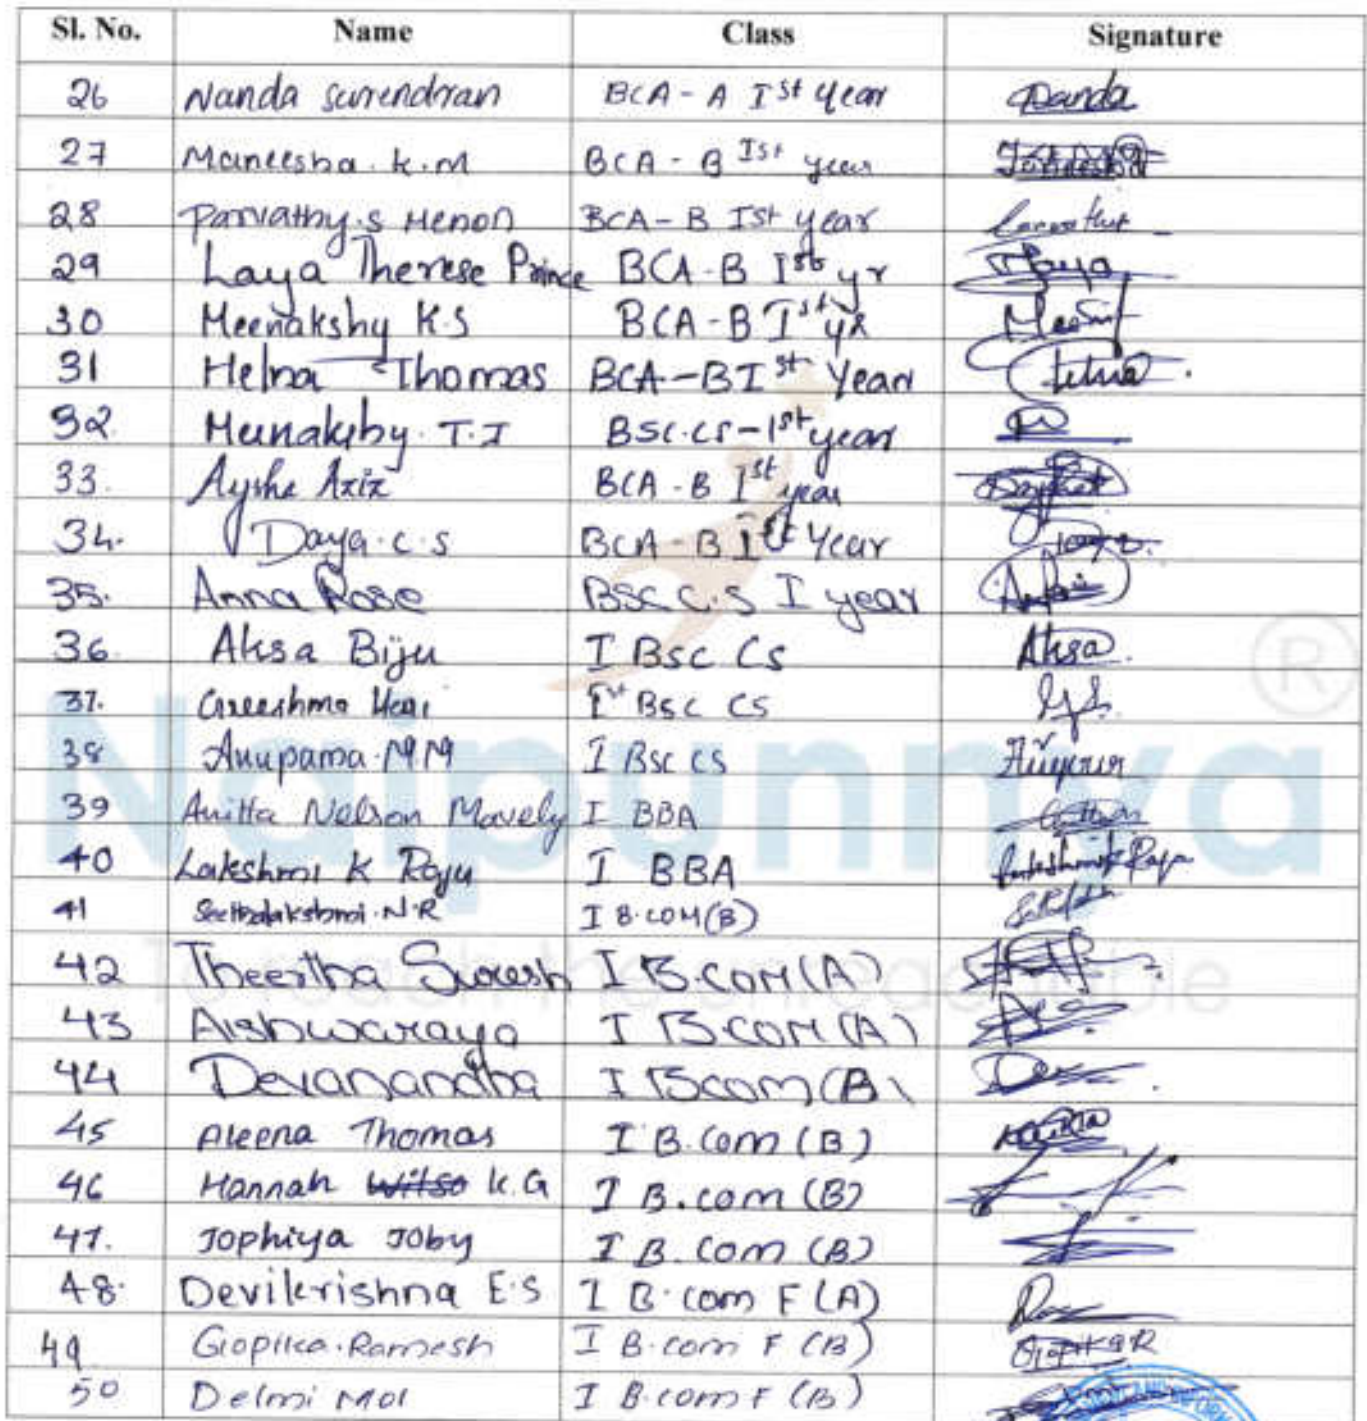 Sl. No. Name Class Signature
26 Nanda Surendran BCA - A Ist year Nanda
27 Maneesha. K.M BCA - B Ist year
28 Parvathy.S Menon BCA - B Ist year
29 Laya Therese Prince BCA-B Ist yr Laya
30 Meenakshy K.S BCA-B Ist yr
31 Helna Thomas BCA-B Ist Year Helna
32. Meenakshy. T.J BSC.CS-1st year
33. Aysha Aziz BCA-B Ist year
34. Daya.C.S BCA-B Ist Year
35. Anna Rose BSC C.S I year
36. Aksa Biju I BSC CS Aksa
37. Greeshma Hari Ist BSC CS
38 Anupama.M.M I BSC CS
39 Anitta Nelson Mavely I BBA
40 Lakshmi K Raju I BBA Lakshmi K Raju
41 Seethalakshmi.N.R I B.COM(B)
42 Theertha Suresh I B.COM(A)
43 Aishwaraya I B.COM(A)
44 Devanandha I Bcom(B)
45 Aleena Thomas I B.Com (B)
46 Hannah K.G I B.com (B)
47. Jophiya Joby I B.Com (B)
48. Devikrishna E.S I B.com F(A)
49 Gopika.Ramesh I B.com F (B) Gopika R
50 Delmi Mol I B.com F (B)
Naipunnya ®
To reach the unreachable